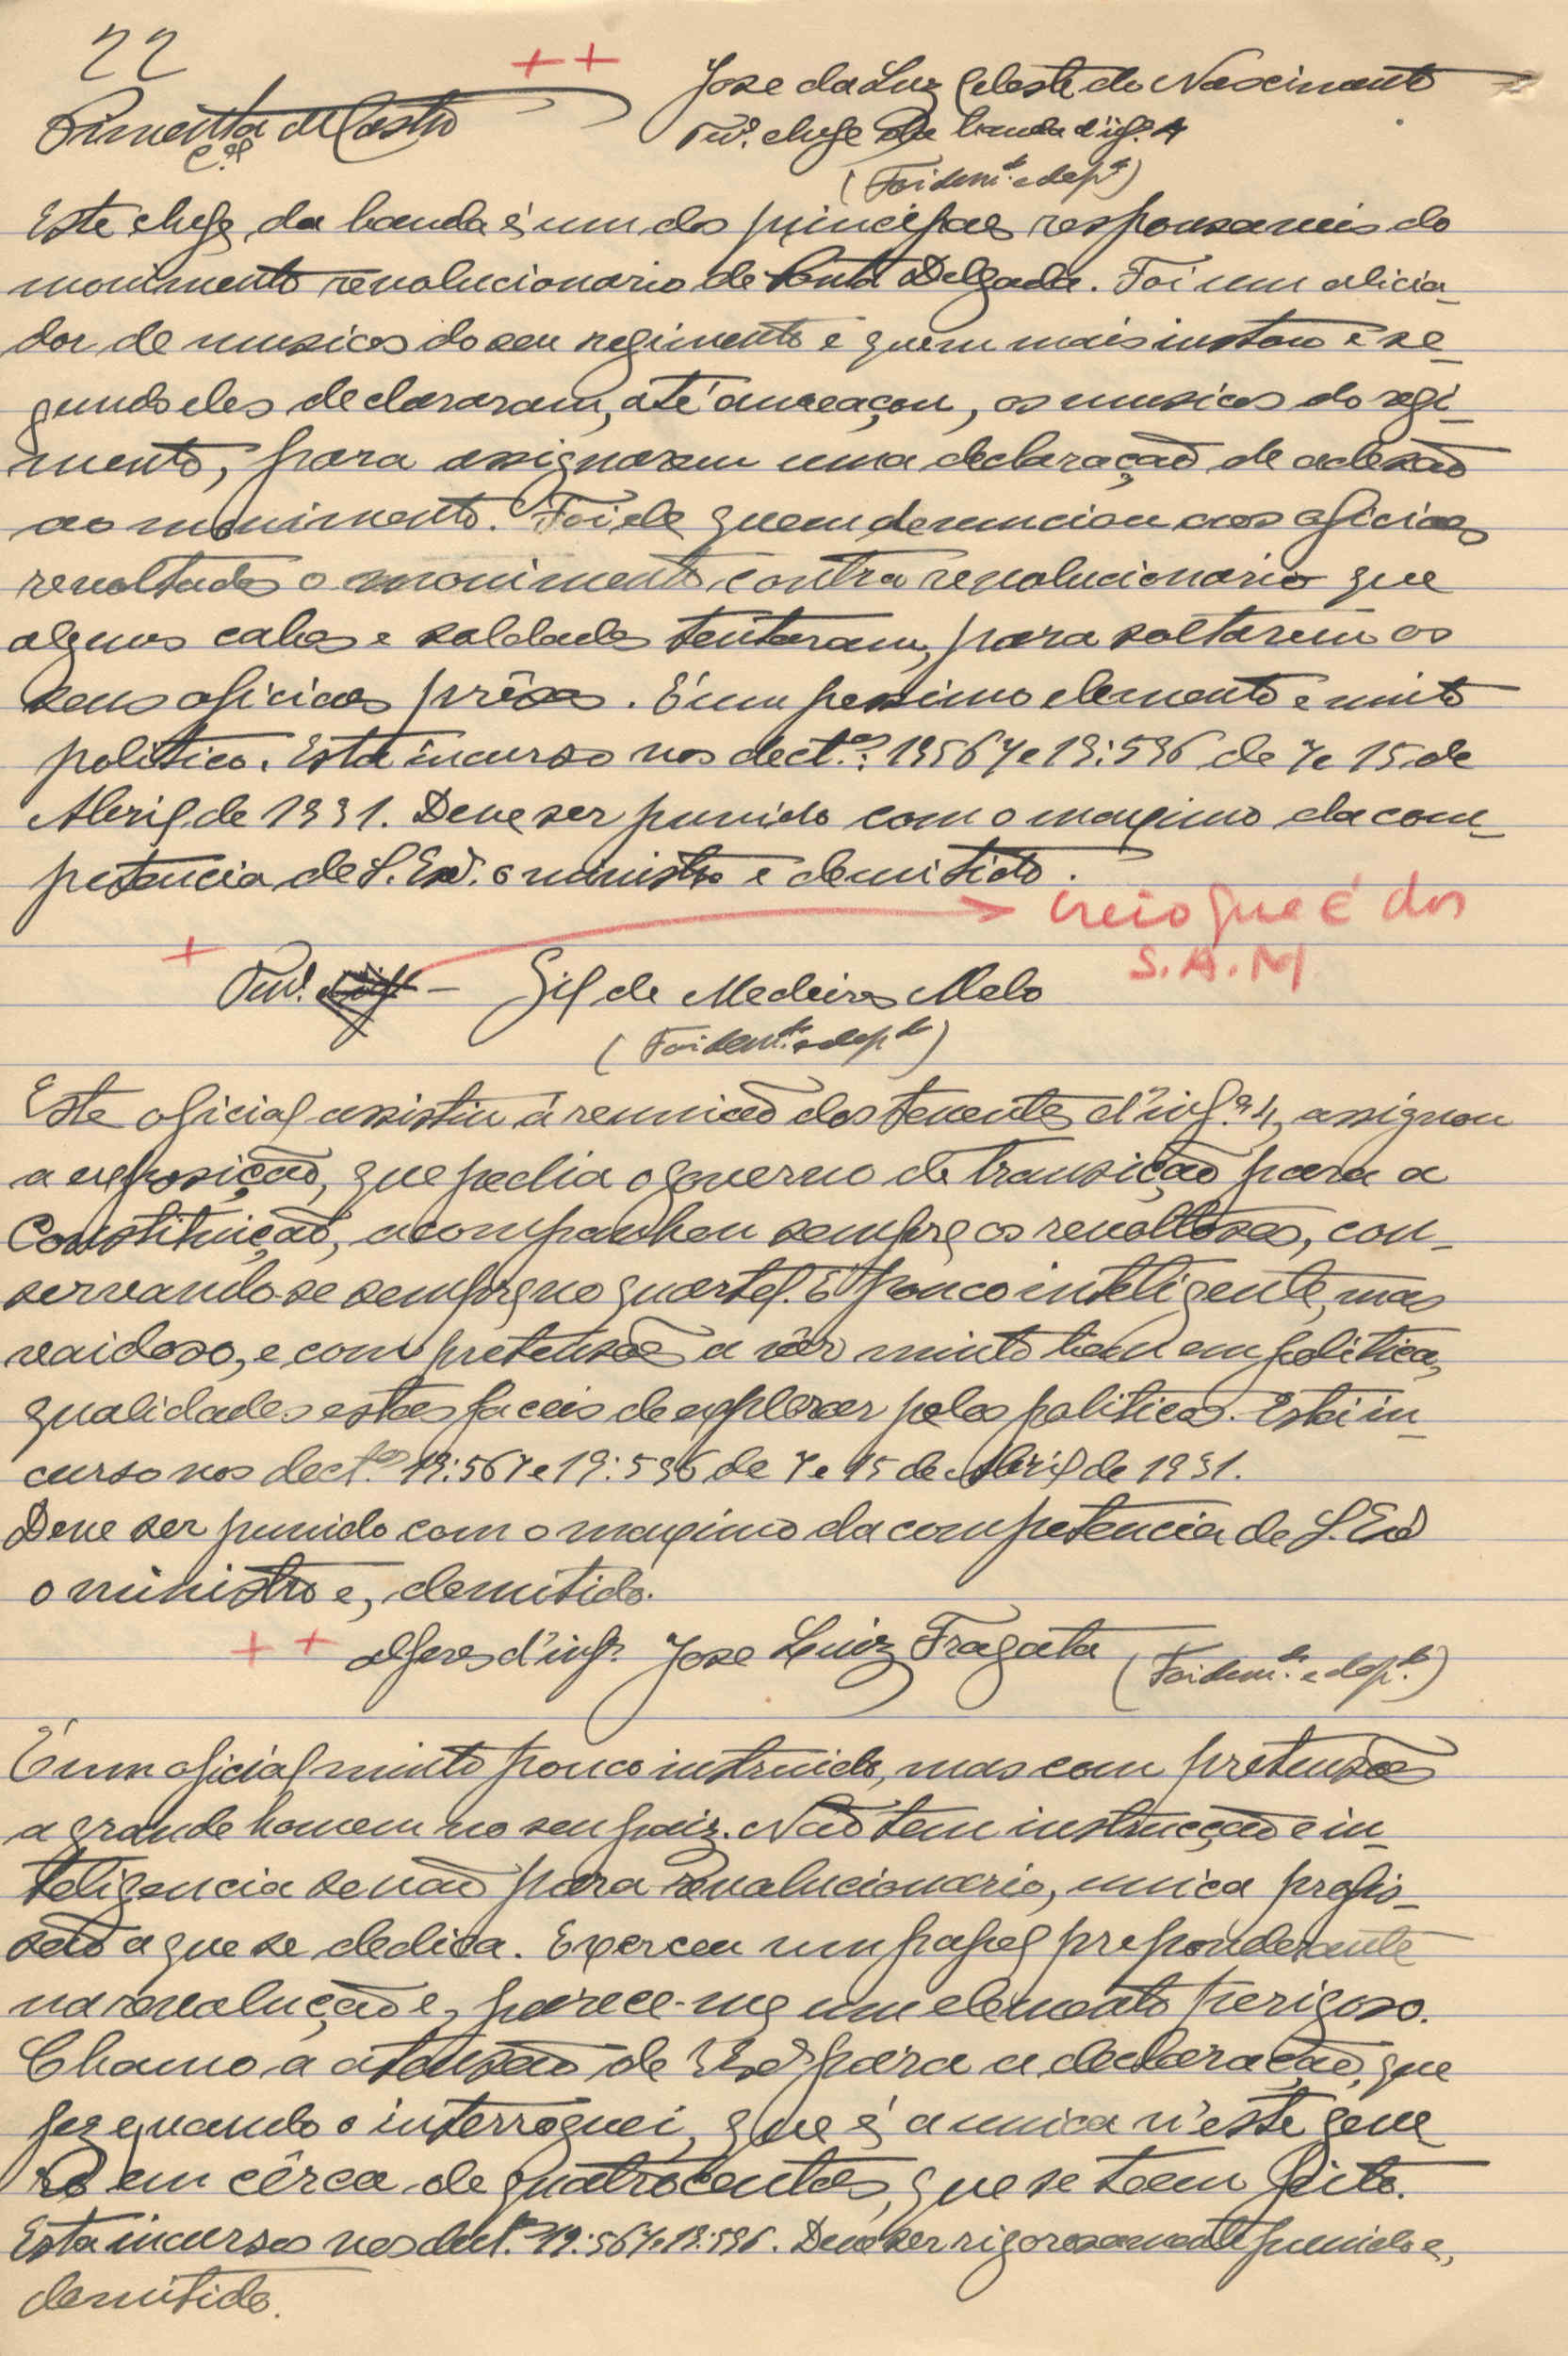 22
++
Pimenta de Castro
C.el
Jose da Luz Celeste do Nascimento
Ten. chefe da banda d'inf.ª 4
(Foi dem.do e dep.do)
Este chefe da banda é um dos principaes responsaveis do
movimento revolucionario de Ponta Delgada. Foi um alicia-
dor de musicos do seu regimento e quem mais instou e se-
gundo eles declararam, até ameaçou, os musicos do regi-
mento, para assignarem uma declaração de adesão
ao movimento. Foi ele quem denunciou aos oficiaes
revoltados o movimento contra revolucionario que
alguns cabos e soldados tentaram, para soltarem os
seus oficiaes prêsos. É um pessimo elemento e muito
politico. Está incurso nos dect.os: 19567 e 19:596 de 7 e 15 de
Abril de 1931. Deve ser punido com o maximo da com-
petencia de S. Ex.ª o ministro e demitido.
creio que é dos
S.A.M
+
Ten. – Gil de Medeiros Melo
(Foi dem.do e dep.do)
Este oficial assistiu á reunião dos tenentes d'inf.ª 4, assignou
a exposição, que pedia o governo de transição para a
Constituição, acompanhou sempre os revoltosos, con-
servando-se sempre no quartel. É pouco inteligente, mas
vaidoso, e com pretensões a vêr muito bem em politica,
qualidades estas faceis de explorar pelos politicos. Está in-
curso nos dect.os 19:567 e 19:596 de 7 e 15 de Abril de 1931.
Deve ser punido com o maximo da competencia de S. Ex.ª
o ministro e, demitido.
++ alferes d'inf.ª Jose Luiz Fragata (Foi dem.do e dep.do)
É um oficial muito pouco instruido, mas com pretensões
a grande homem no seu paiz. Não tem instrucção e in-
teligencia senão para revolucionario, unica profis-
são a que se dedica. Exerceu um papel preponderante
na revolução e, parece-me um elemento perigoso.
Chamo a atensão de V. Ex.ª para a declaração, que
fez quando o interroguei, que é a unica n'este gene-
ro em cêrca de quatrocentas, que se teem feito.
Esta incurso nos dect.os 19:567 e 19:596. Deve ser rigorosamente punido e,
demitido.